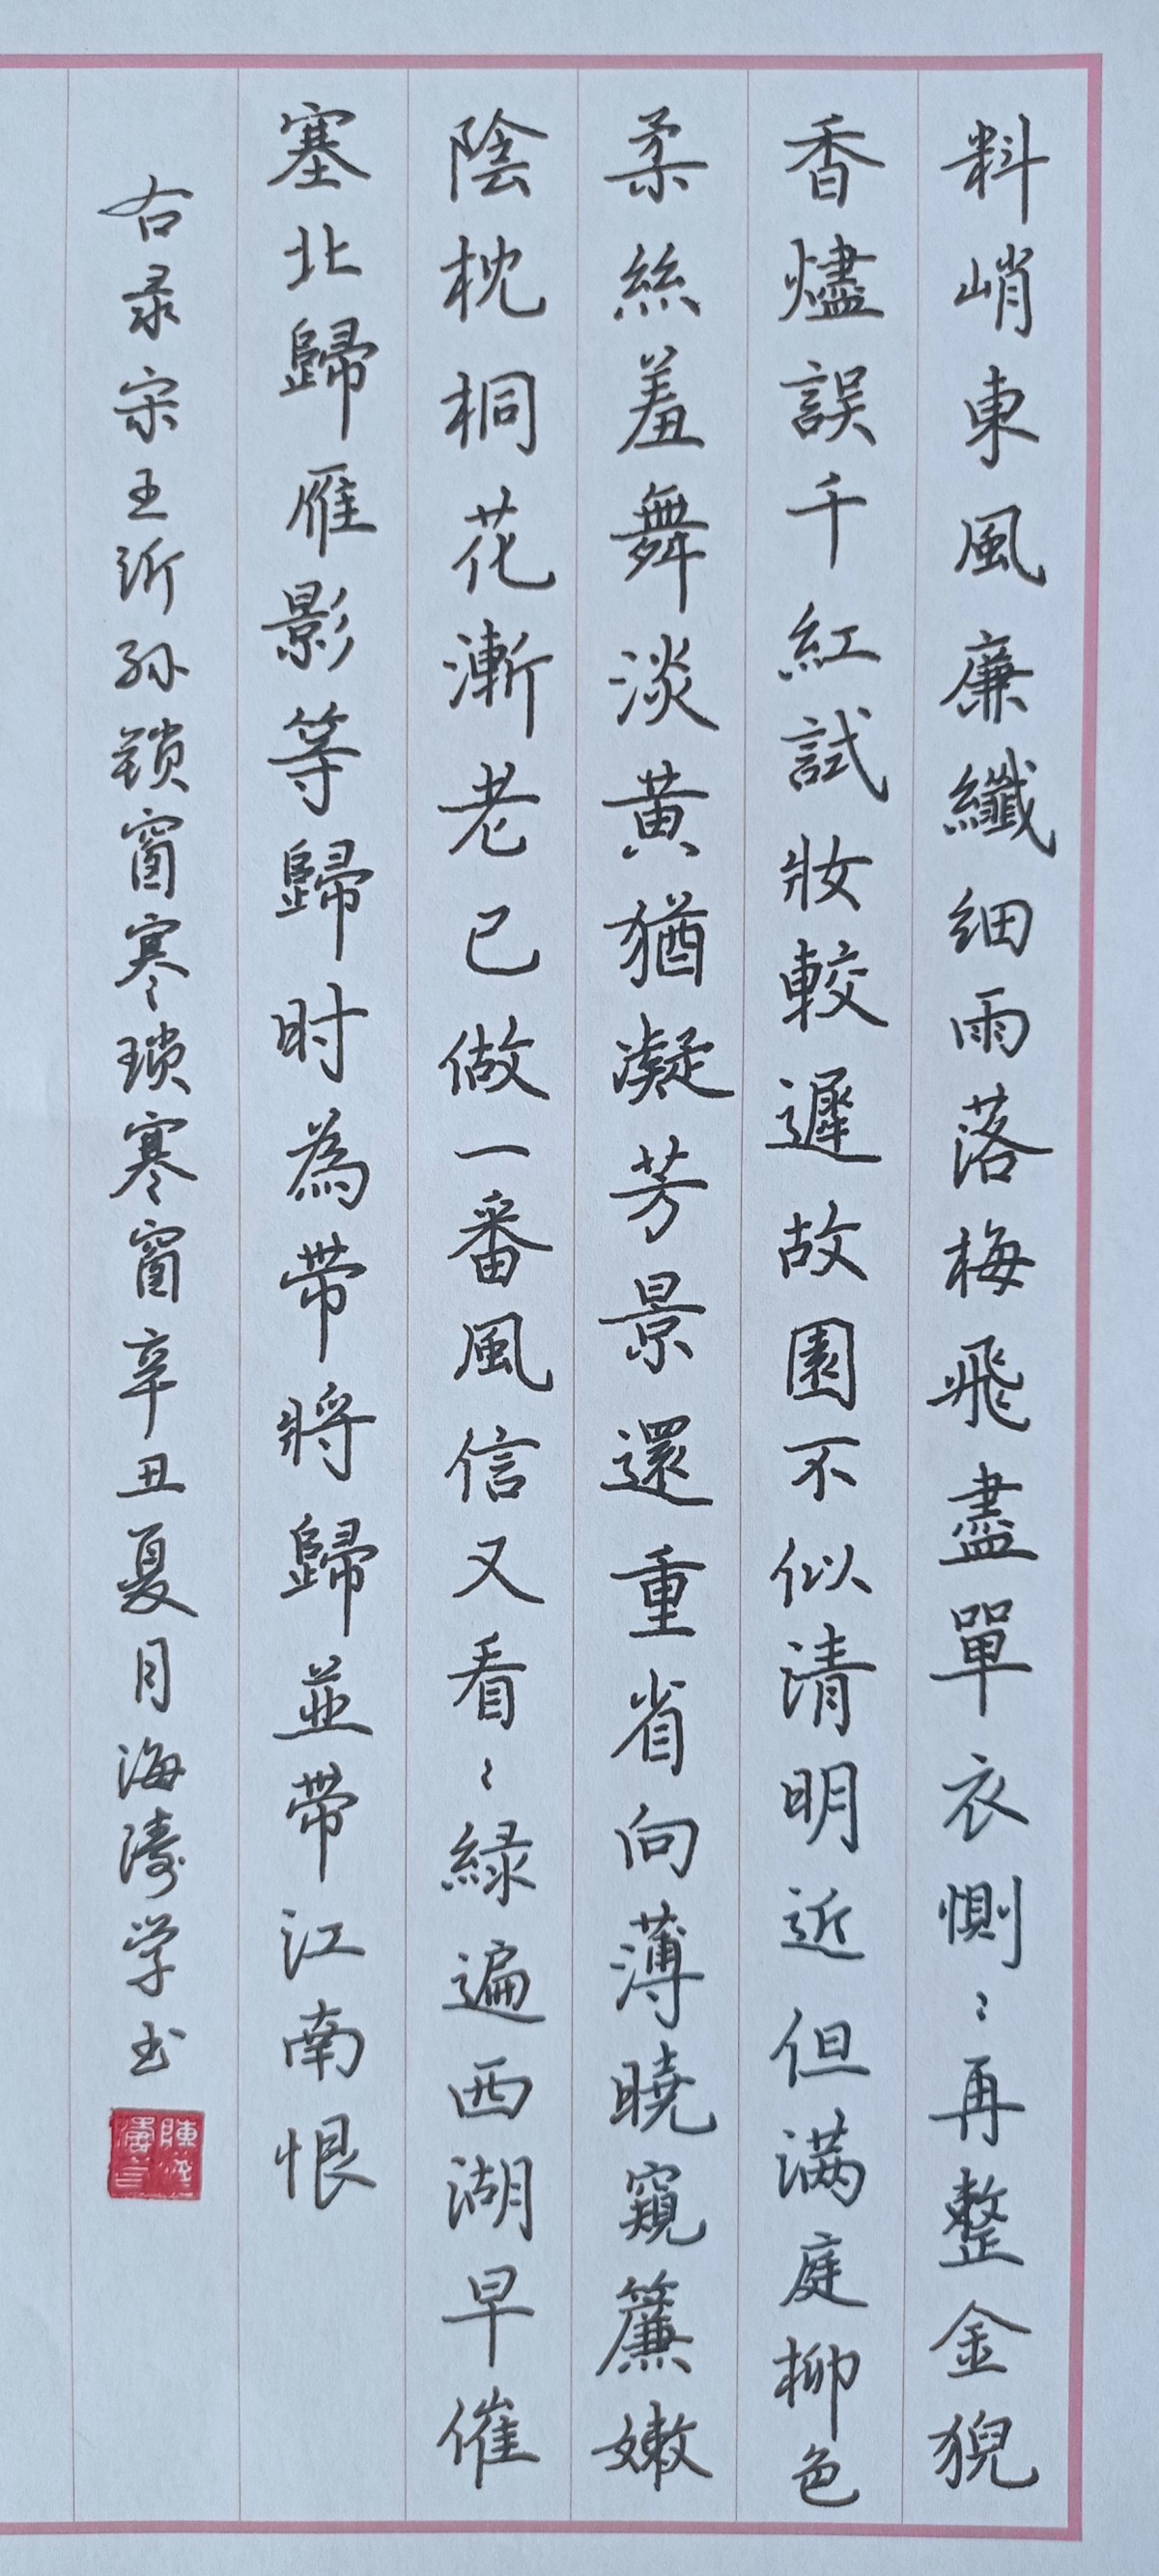 料峭東風廉纖细雨落梅飛盡單衣惻〻再整金猊
香燼誤千紅試妝較遲故園不似清明近但满庭柳色
柔絲羞舞淡黄猶凝芳景還重省向薄曉窺簾嫩
陰枕桐花漸老已做一番風信又看〻緑遍西湖早催
塞北歸雁影等歸时為带將歸並带江南恨
右录宋王沂孙锁窗寒琐寒窗辛丑夏月海濤学书